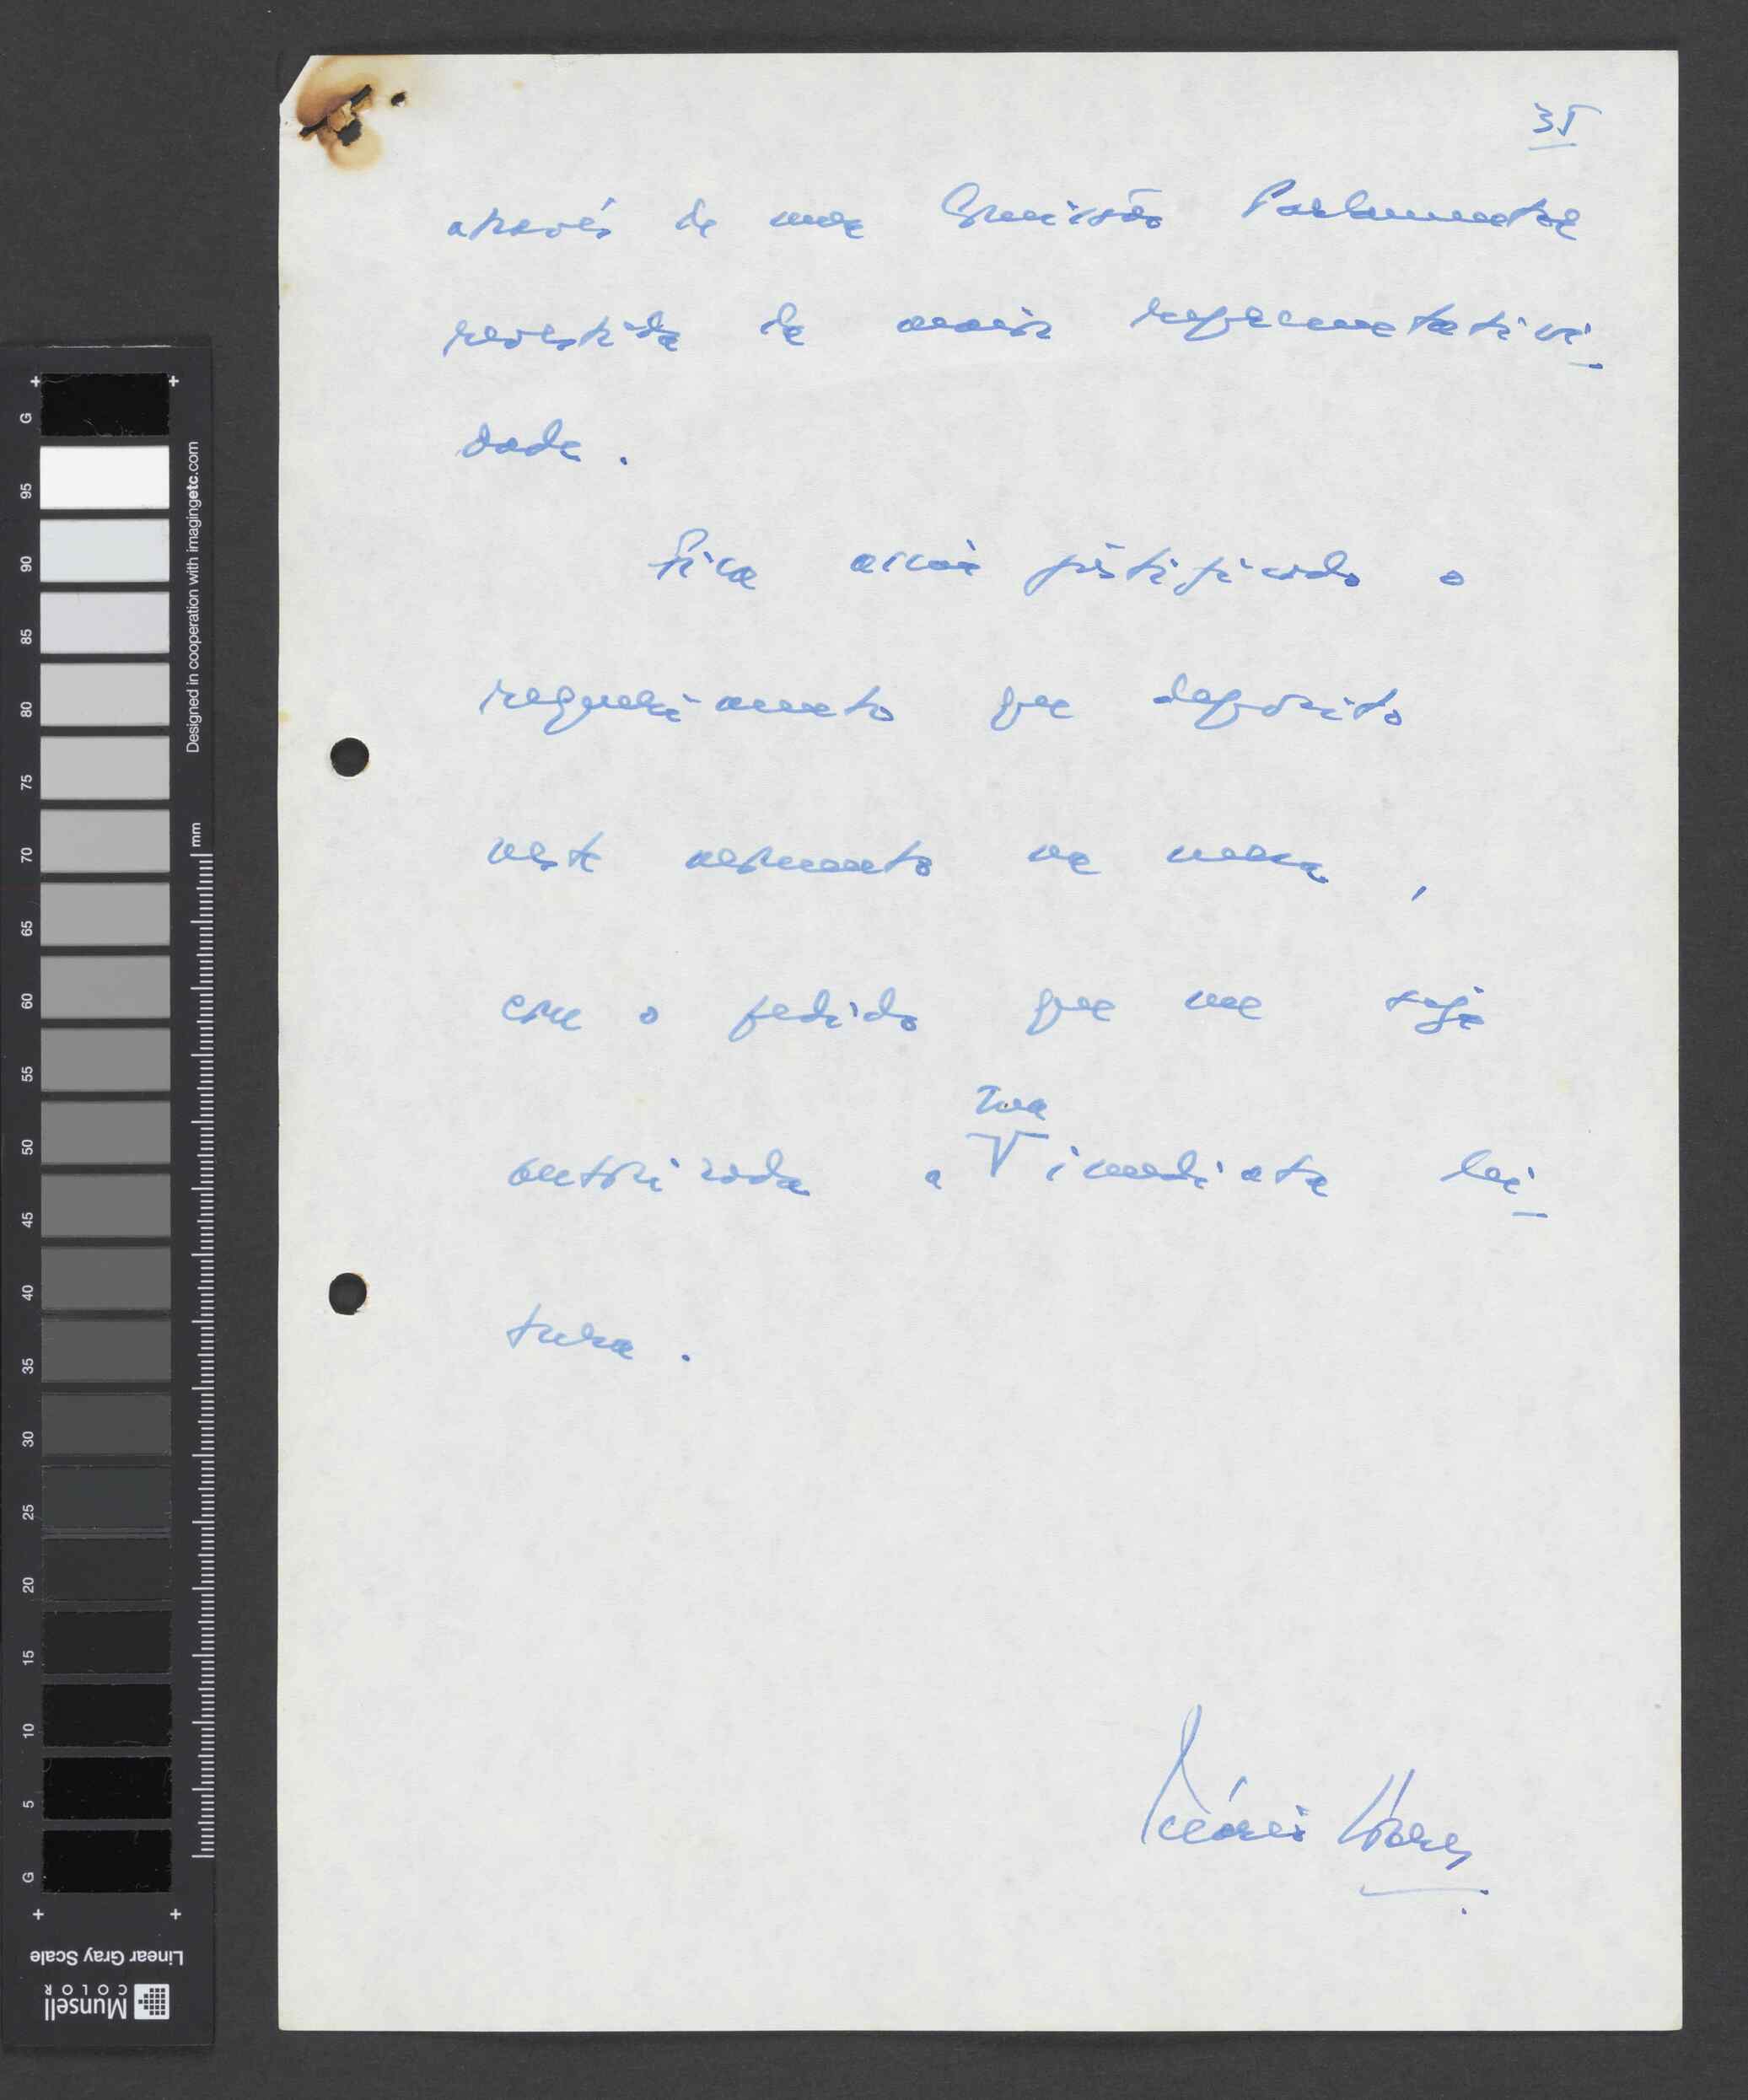 35
através de uma Comissão Parlamentar
revestida de maior representativi-
dade.
Fica assim justificado o
requerimento que deposito
neste momento na mesa,
com o pedido que me seja
sua
autorizada a V imediata lei-
tura.
Mário Soares
G
95
90
85
80
75
70
65
60
55
50
45
40
35
30
25
20
15
10
5
G
Designed in cooperation with imagingetc.com
mm
Linear Gray Scale
Munsell
COLOR